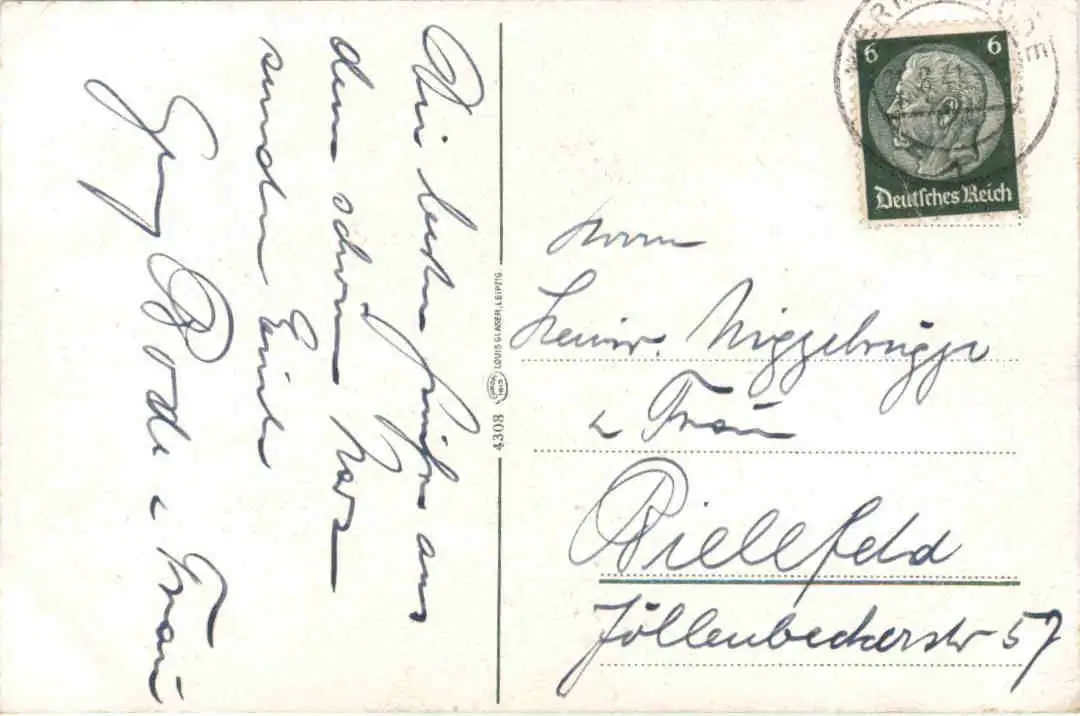 Die besten Grüße aus
dem schönen Harz
senden Euch
Bode u Frau
4308
LOUIS GLASER, LEIPZIG.
6
6
Deutsches Reich
Herrn
Heinr. Niggebrügge
u Frau
Bielefeld
Jöllenbeckerstr 57